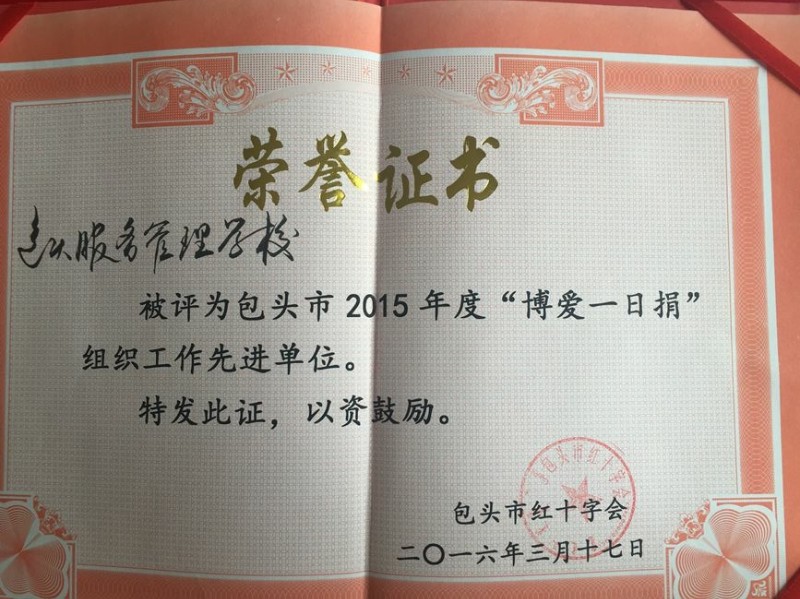 荣誉证书
包头服务管理学校
被评为包头市 2015 年度“博爱一日捐”
组织工作先进单位。
特发此证，以资鼓励。
包头市红十字会
包头市红十字会
二〇一六年三月十七日